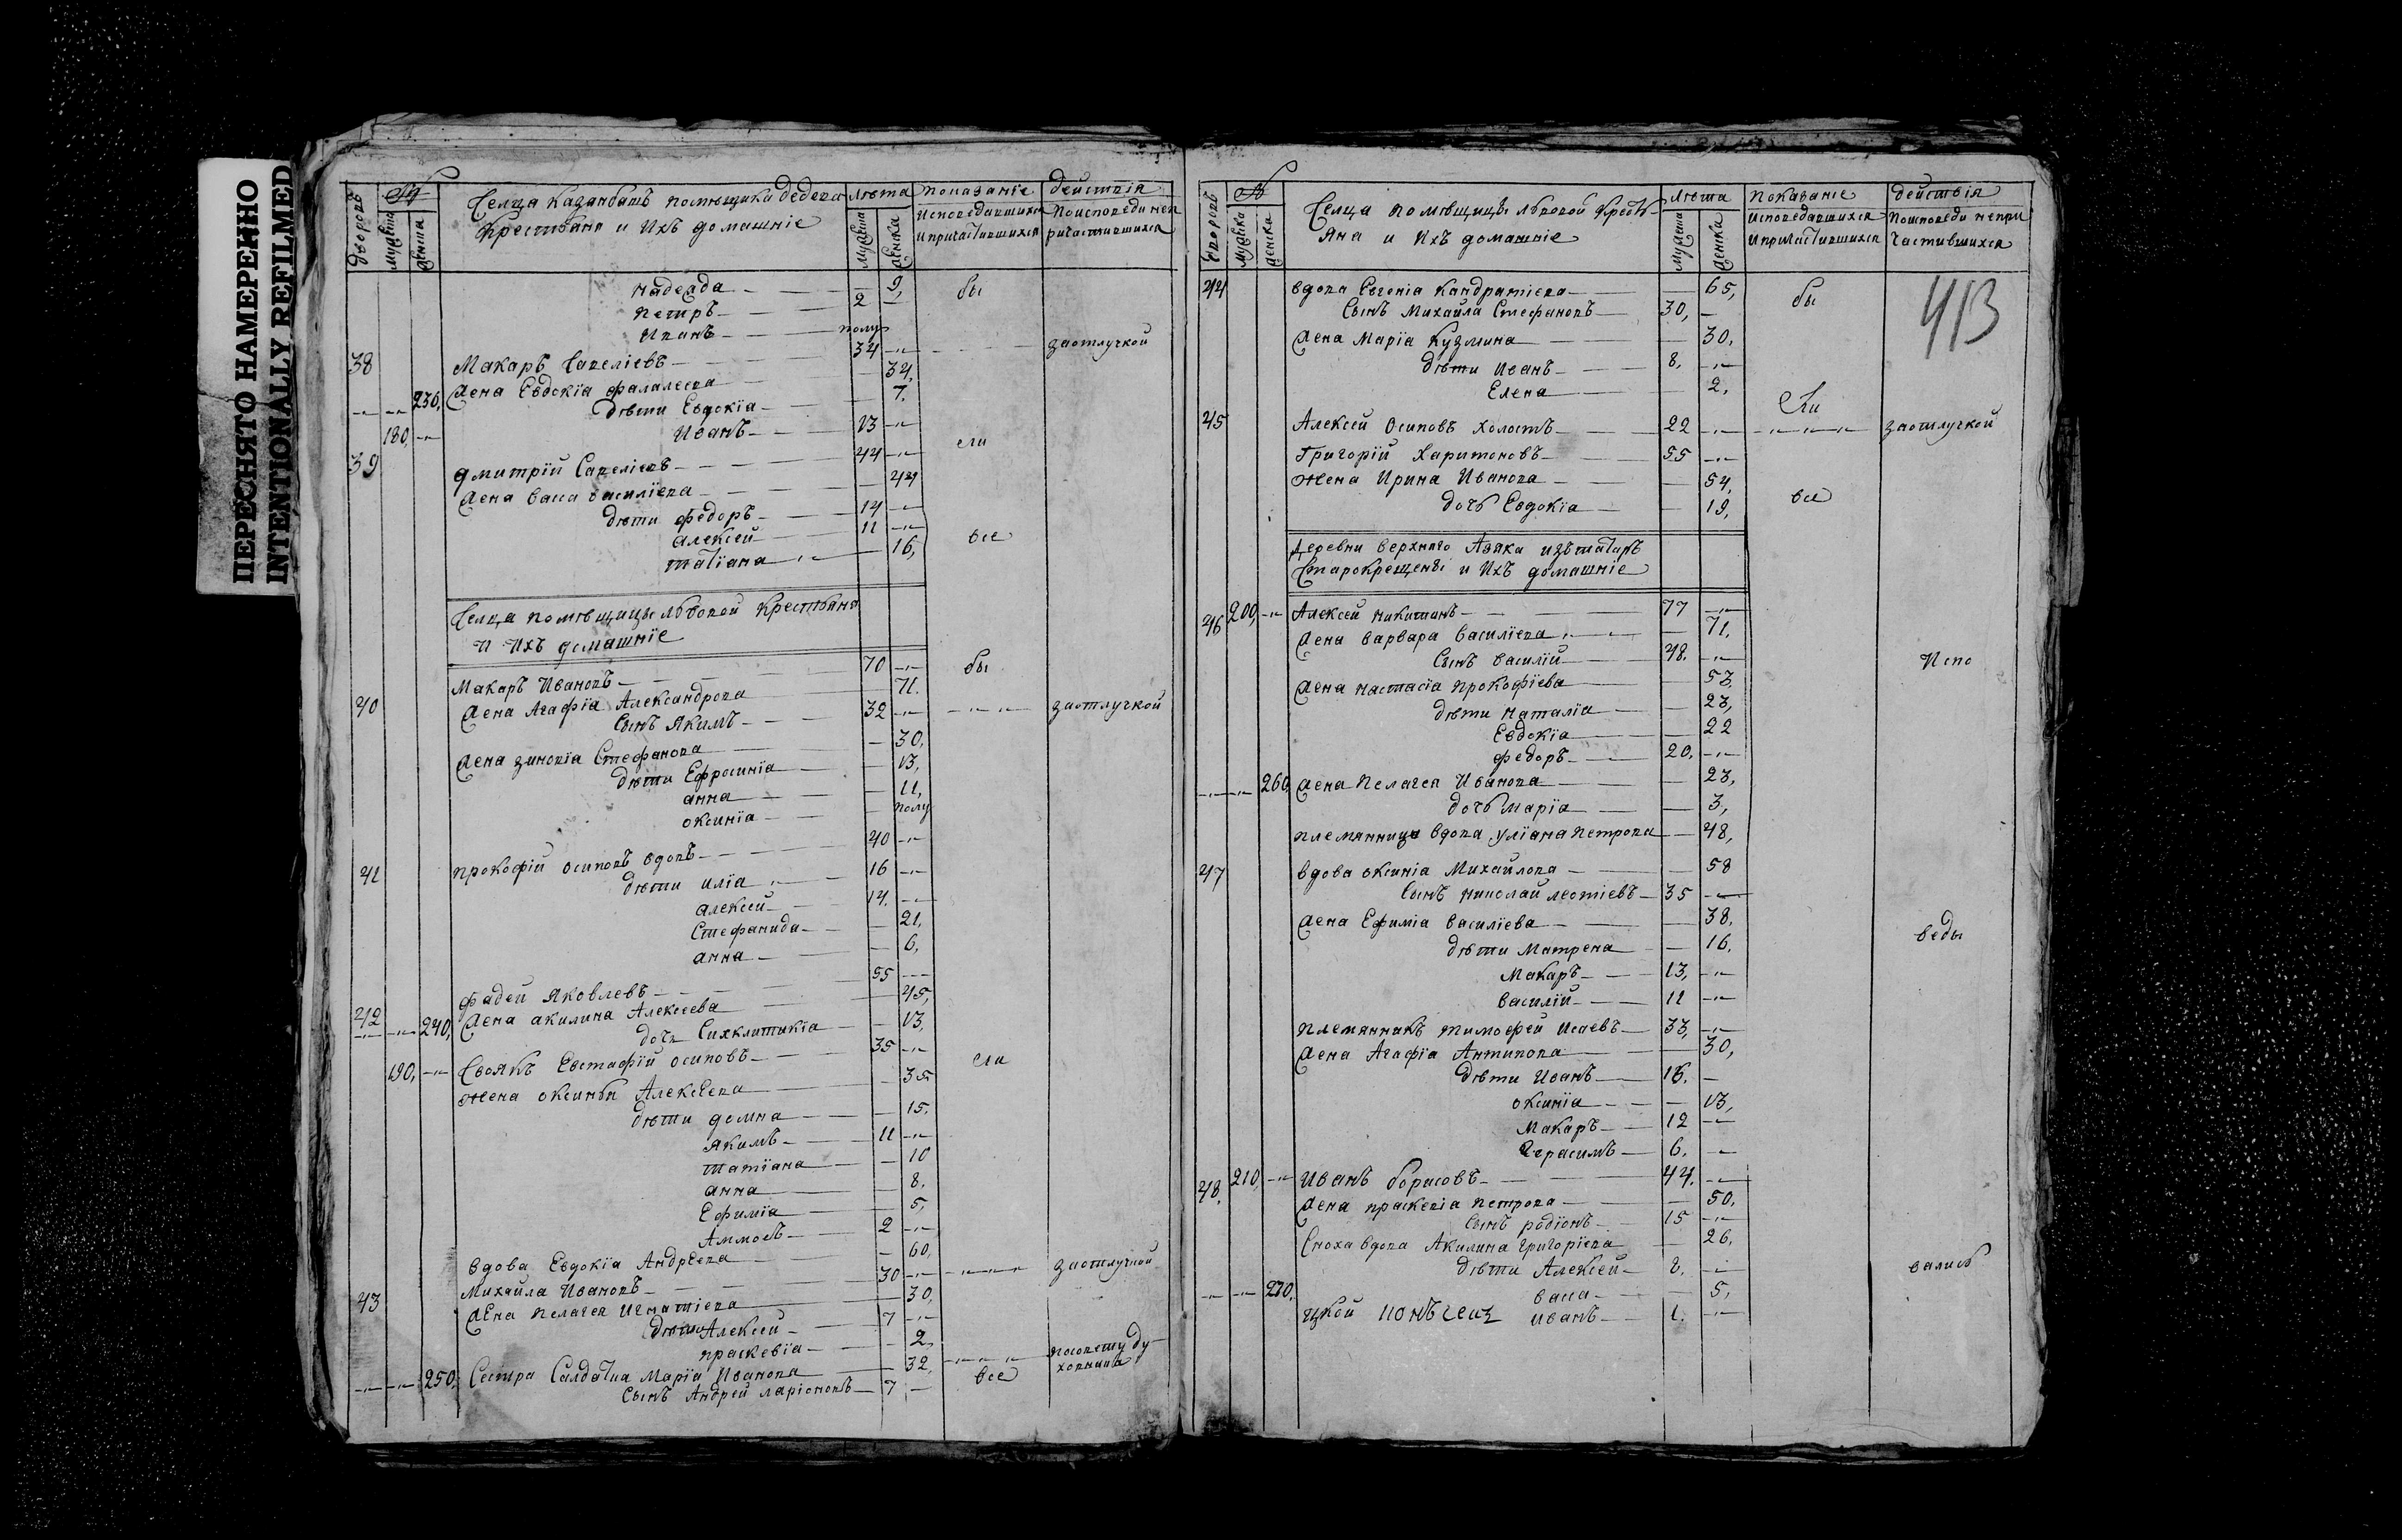 ПЕРЕСНЯТО НАМЕРЕННО
INTENTIONALLY REFILMED
дворовъ
№
мужеска
женска
Селца Казанбашъ помѣщика Дедева
Крестьянъ и ихъ домашніе
лѣта
мужеска
женска
показаніе
исповедавшихся
и причастившихся
действія
по исповеди неп
ричастившихся
Надежда 9,
бы
Петръ 2
Иванъ полу
38 Макаръ Савеліевъ 34 заотлучкой
Жена Евдокіа Фалалеева 34,
236, дѣти Евдокіа 7,
180, Иванъ 13
ели
39 Дмитрій Савеліевъ 44
Жена Васа Василіева 44
дѣти Федоръ 14
Алексей 11
Татіана 16,
все
Селца помѣщицы Львовой Крестьянъ
и ихъ домашніе
40 Макаръ Ивановъ 70
бы
Жена Агафіа Александрова 71.
Сынъ Якимъ 32 заотлучкой
Жена Зиновіа Стефанова 30,
дѣти Ефросиніа 13,
Анна 11,
Оксиніа полу
41 Прокофій Осиповъ вдовъ 40
дѣти Иліа 16
Алексей 14.
Стефанида 21,
Анна 6,
42 Фадей Яковлевъ 55
240, Жена Акилина Алексеева 45,
дочь Сихклитикіа 13,
190, Своякъ Евстафій Осиповъ 35
ели
Жена Оксинья Алексеева 35
дѣти Домна 15.
Якимъ 11
Татіана 10
Анна 8.
Ефиміа 5,
Аммосъ 2
Вдова Евдокіа Андреева 60,
43 Михайла Ивановъ 30 заотлучкой
Жена Пелагея Игнатіева 30,
дѣти Алексей 7
Праскевіа 2,
250, Сестра Салдатка Маріа Иванова 32,
все
Сынъ Андрей Ларіоновъ 7
дворовъ
№
мужеска
женска
Селца помѣщицы Львовой кресть-
яна и ихъ домашніе
лѣта
мужеска
женска
показаніе
исповедавшихся
и причастившихся
действія
по исповеди непри
частившихся
413
44 вдова Евгеніа Кандратіева 65,
бы
Сынъ Михайла Стефановъ 30,
Жена Маріа Кузмина 30,
дѣти Иванъ 8.
Елена 2.
ли
45 Алексей Осиповъ холостъ 22 заотлучкой
Григорій Харитоновъ 55
Жена Ирина Иванова 54,
дочь Евдокіа 19,
все
Деревни Верхняго Азяка изъ татаръ
Старокрещены и ихъ домашніе
46 200, Алексей Никитинъ 77
Жена Варвара Василіева 71,
Сынъ Василій 48.
Испо
Жена Настасіа Прокофіева 53,
дѣти Наталіа 23,
Евдокіа 22
Федоръ 20.
260, Жена Пелагея Иванова 23,
дочь Маріа 3,
племянница вдова Уліана Петрова 48,
47 вдова Оксиніа Михайлова 58
Сынъ Николай Леотіевъ 35
Жена Ефиміа Василіева 38,
веды
дѣти Матрена 16.
Макаръ 13,
Василій 11
племянникъ Тимофей Исаевъ 33,
Жена Агафіа Антипова 30,
дѣти Иванъ 16.
Оксиніа 13,
Макаръ 12
Герасимъ 6.
48. 210, Иванъ Борисовъ 44.
Жена Праскевіа Петрова 50,
Сынъ Родіонъ 15
Сноха вдова Акилина Григоріева 26.
дѣти Алексей 8.
вались
270, Васа 5,
Иванъ 1.